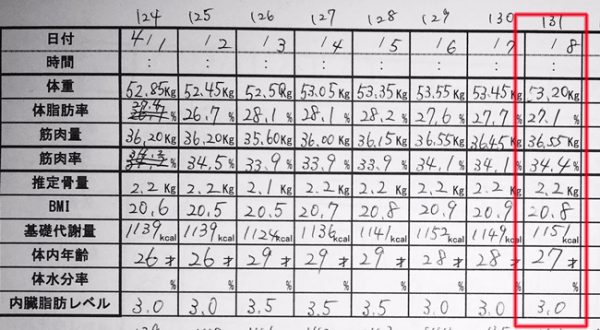 124 125 126 127 128 129 130 131
日付 4/1 /2 /3 /4 /5 /6 /7 /8
時間 : : : : : : : :
体重 52.85Kg 52.45Kg 52.50Kg 53.05Kg 53.35Kg 53.55Kg 53.45Kg 53.20Kg
体脂肪率 % 26.7% 28.1% 28.1% 28.2% 27.6% 27.7% 27.1%
筋肉量 36.20Kg 36.20Kg 35.60Kg 36.00Kg 36.15Kg 36.55Kg 36.45Kg 36.55Kg
筋肉率 % 34.5% 33.9% 33.9% 33.9% 34.1% 34.1% 34.4%
推定骨量 2.2Kg 2.2Kg 2.1Kg 2.2Kg 2.2Kg 2.2Kg 2.2Kg 2.2Kg
BMI 20.6 20.5 20.5 20.7 20.8 20.9 20.9 20.8
基礎代謝量 1139kcal 1139kcal 1124kcal 1136kcal 1141kcal 1152kcal 1149kcal 1151kcal
体内年齢 26才 26才 29才 29才 29才 28才 28才 27才
体水分率 % % % % % % % %
内臓脂肪レベル 3.0 3.0 3.5 3.5 3.5 3.0 3.0 3.0